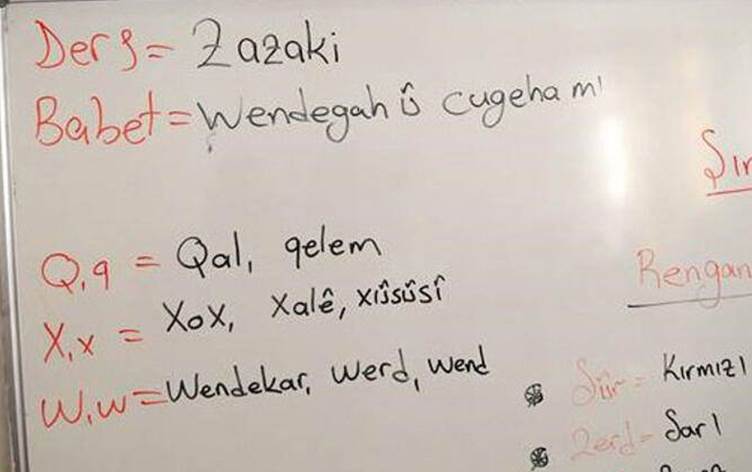 Ders = Zazaki
Babet = Wendegah û cugeha mı
Q,q = Qal, qelem
X,x = XoX, Xalê, xûsûsî
W,w = Wendekar, Werd, Wend
Rengan
Sûr = Kırmızı
Zerd = Sarı